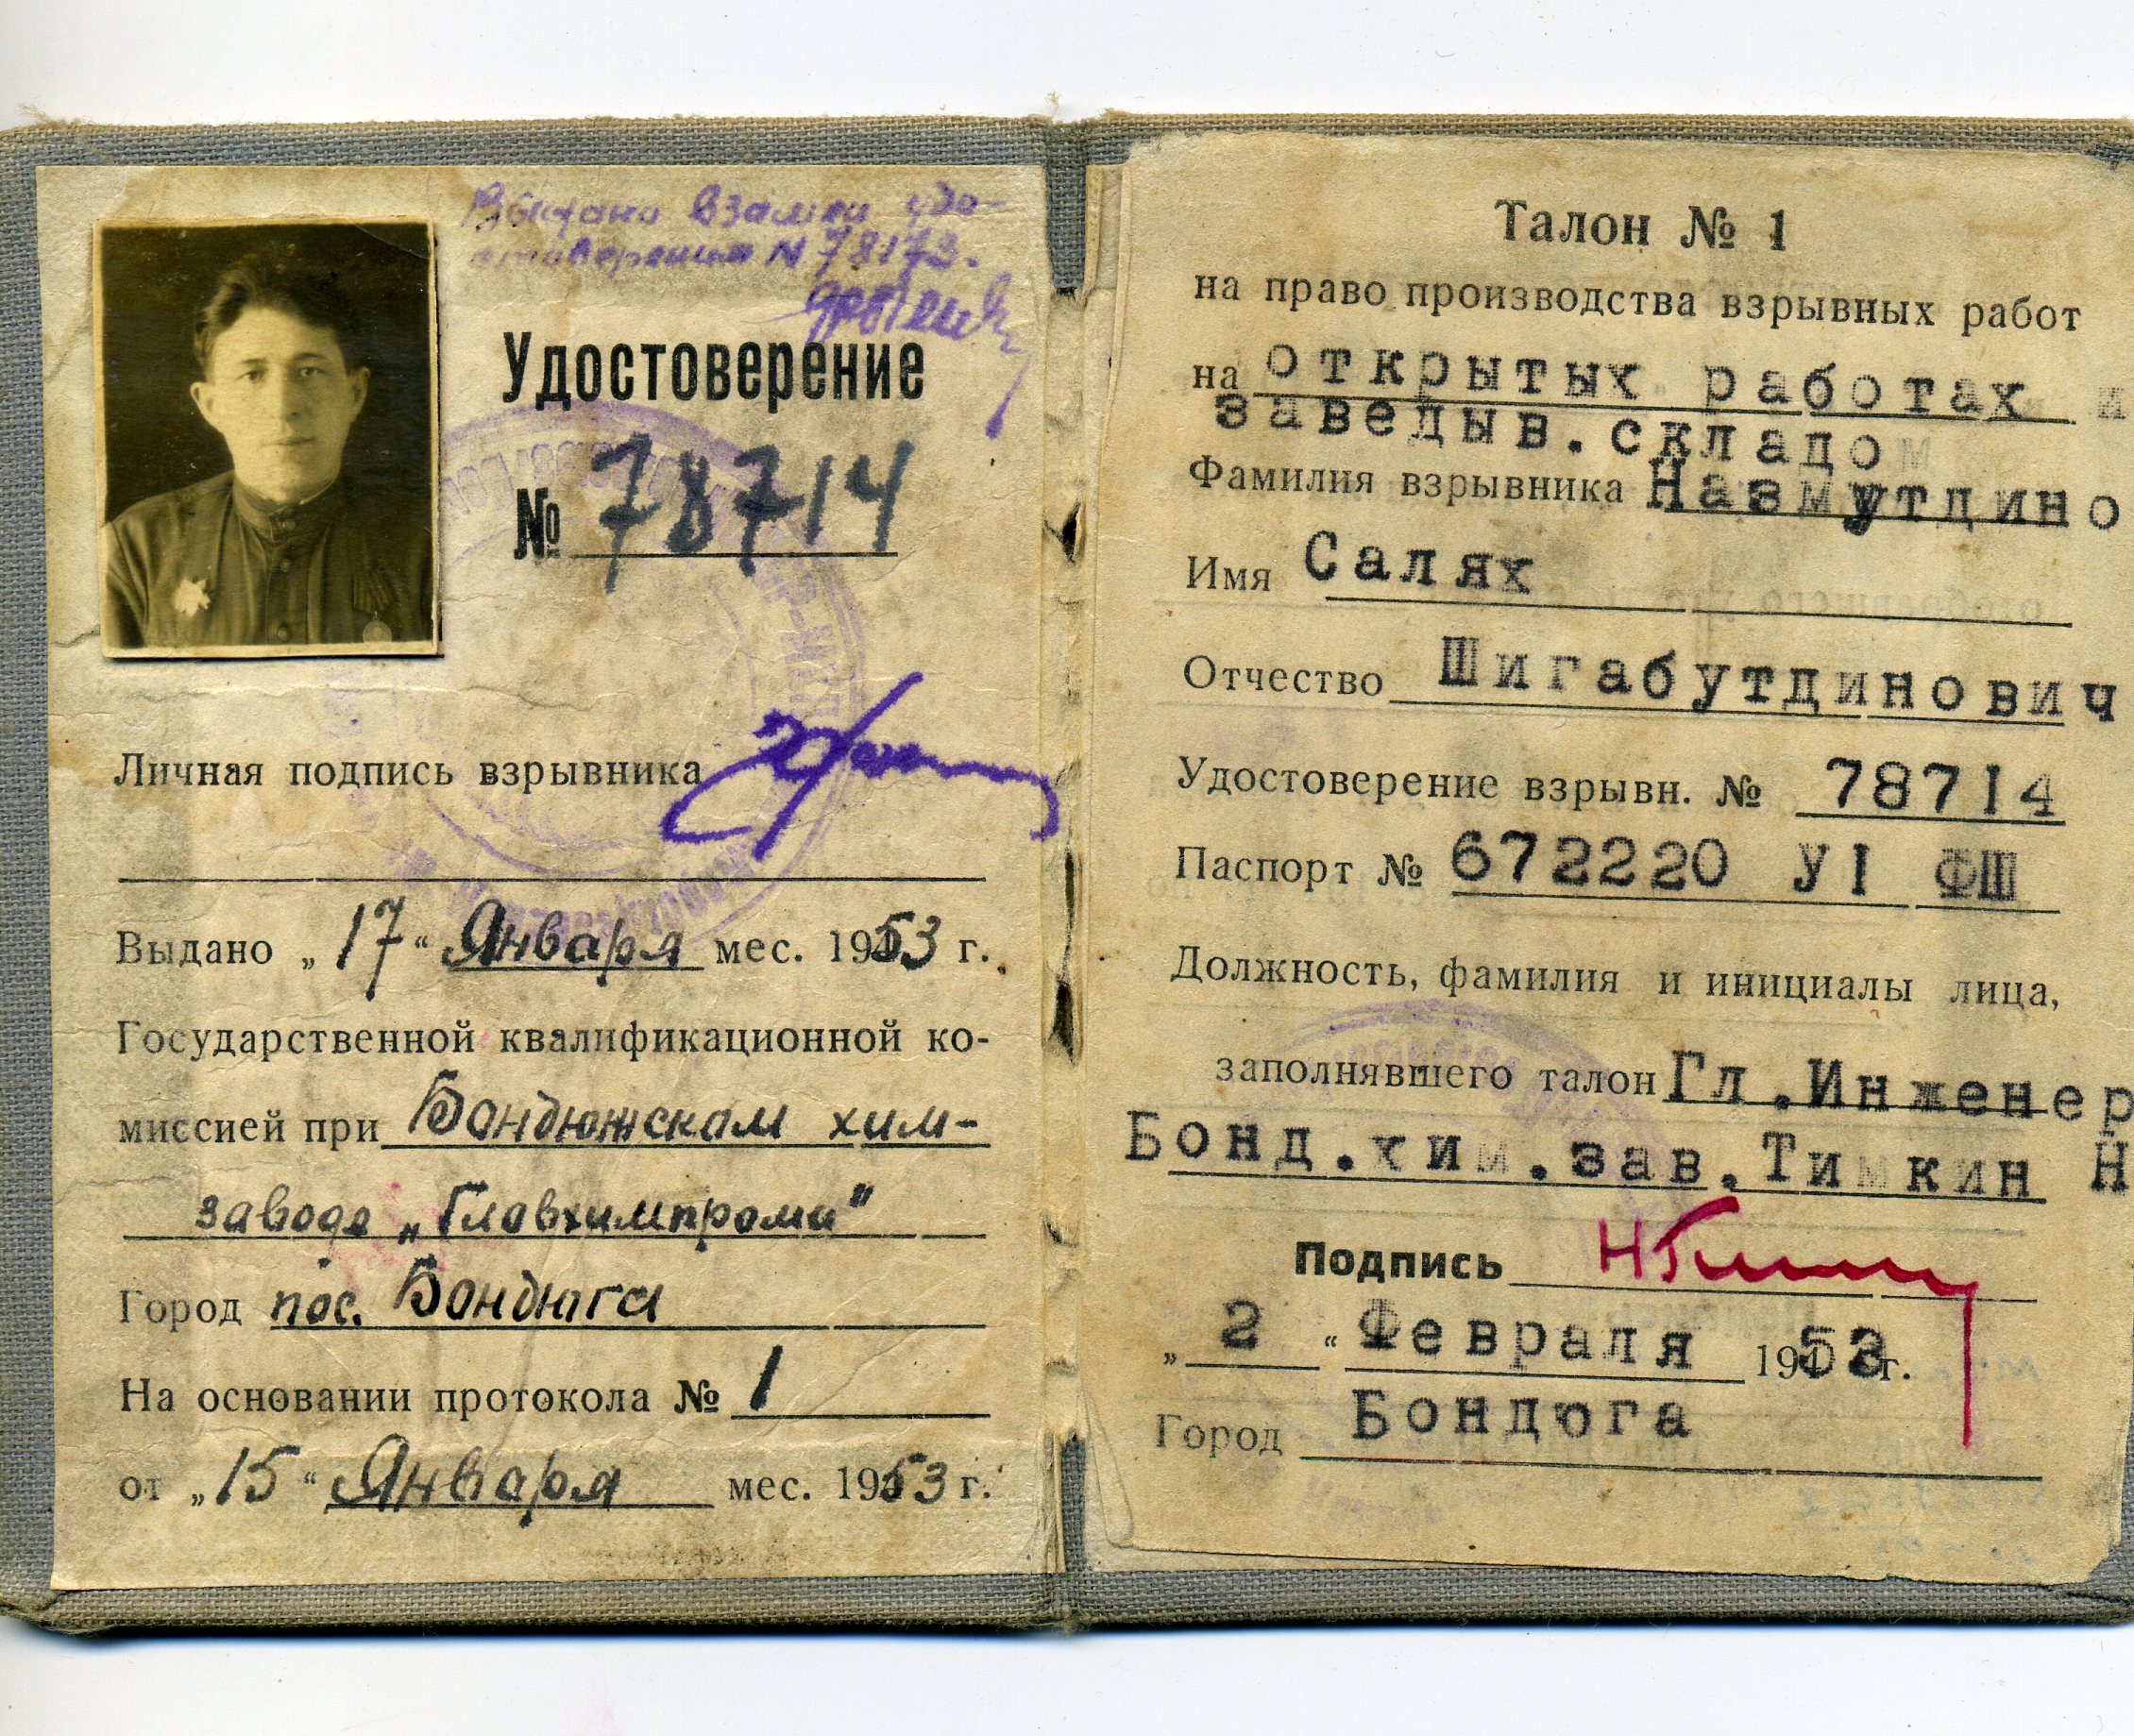 Выдано взамен удо-
стоверения N 78173.
Удостоверение
№ 78714
Личная подпись взрывника
Выдано „17“ Января мес. 1953 г.
Государственной квалификационной ко-
миссией при Бондюжском хим-
заводе „Главхимпрома"
Город пос. Бондюга
На основании протокола № 1
от „15“ Января мес. 1953 г.
Талон № 1
на право производства взрывных работ
на открытых работах и
заведыв.складом
Фамилия взрывника Назмутдино
Имя Салях
Отчество Шигабутдинович
Удостоверение взрывн. № 78714
Паспорт № 672220 У1 ФШ
Должность, фамилия и инициалы лица,
заполнявшего талон Гл.Инженер
Бонд.хим.зав.Тимкин Н
Подпись
„2“ Февраля 1953г.
Город Бондюга